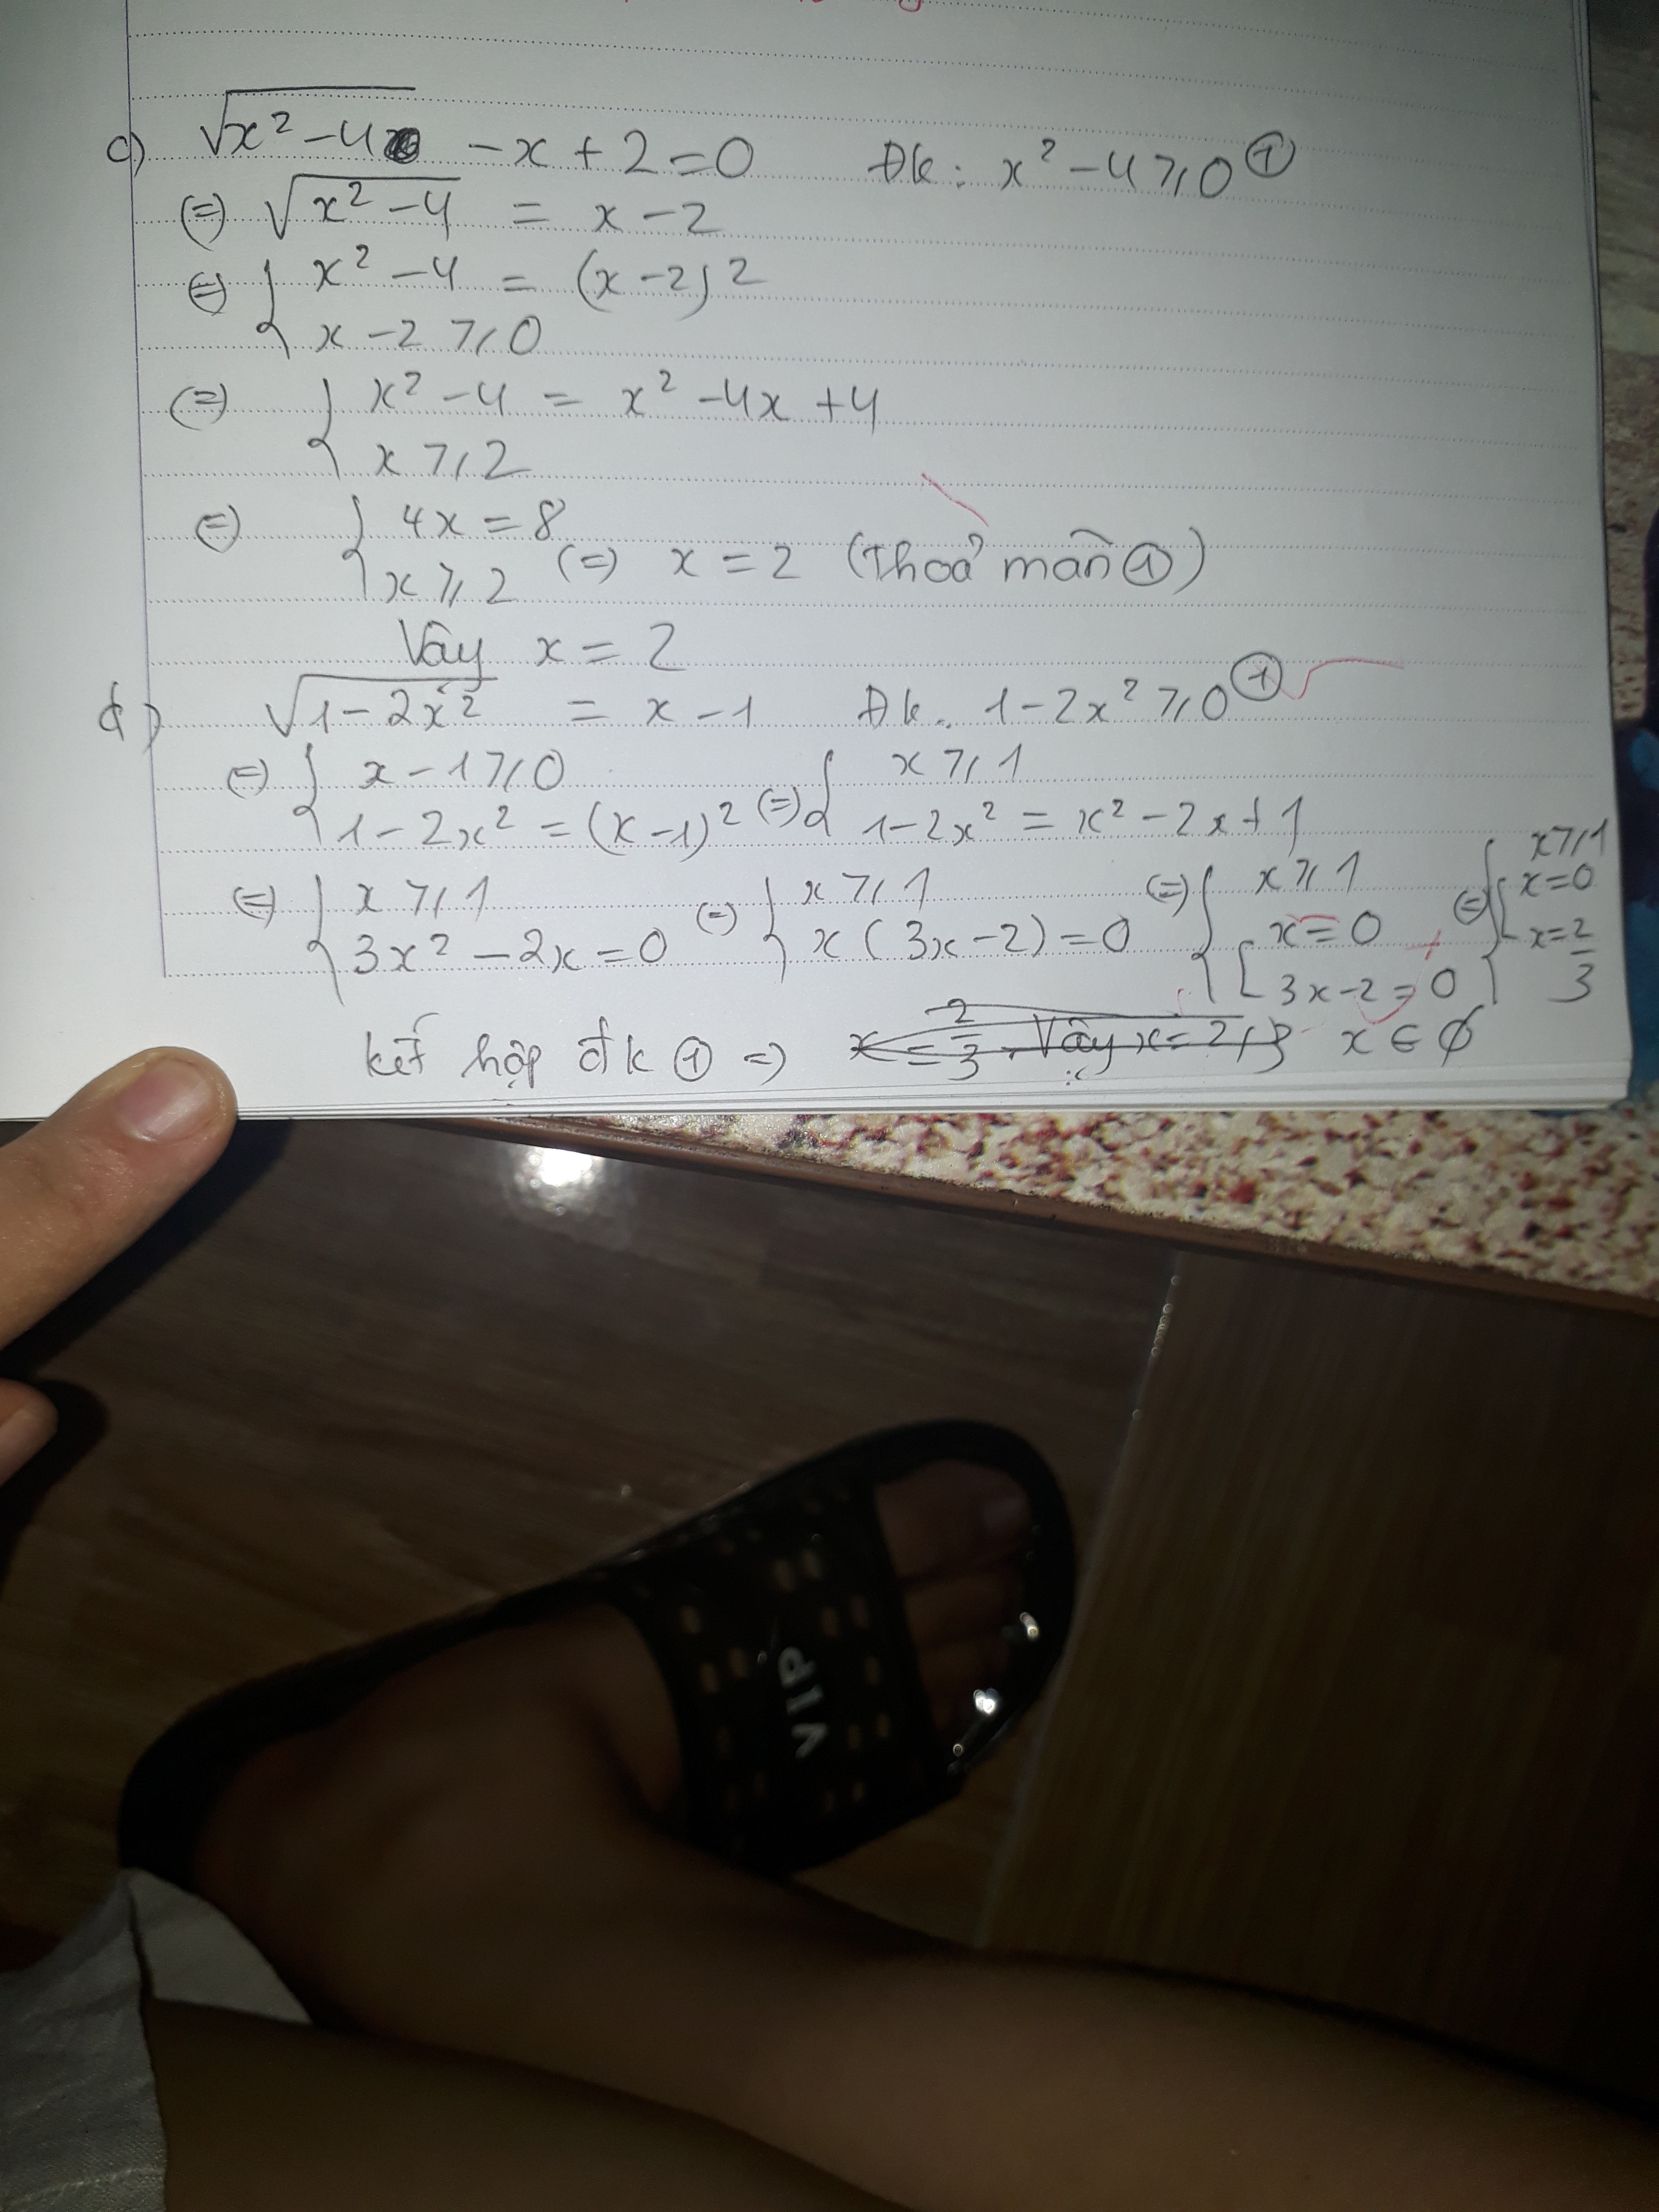 c) √x² - 4 - x + 2 = 0 Đk: x² - 4 ⩾ 0 ①
(=) √x² - 4 = x - 2
(=) { x² - 4 = (x - 2)²
x - 2 ⩾ 0
(=) { x² - 4 = x² - 4x + 4
x ⩾ 2
(=) { 4x = 8
x ⩾ 2 (=) x = 2 (Thoả mãn ①)
Vây x = 2
d) √1 - 2x² = x - 1 Đk. 1 - 2x² ⩾ 0 ①
(=) { x - 1 ⩾ 0 (=) { x ⩾ 1
1 - 2x² = (x - 1)² 1 - 2x² = x² - 2x + 1
(=) { x ⩾ 1 (=) { x ⩾ 1 (=) { x ⩾ 1 (=) { x ⩾ 1
3x² - 2x = 0 x(3x - 2) = 0 [ x = 0 [ x = 0
3x - 2 = 0 x = 2/3
kết hợp đk ① => x = 2/3. Vậy x = 2/3 x ∈ ∅
VIP